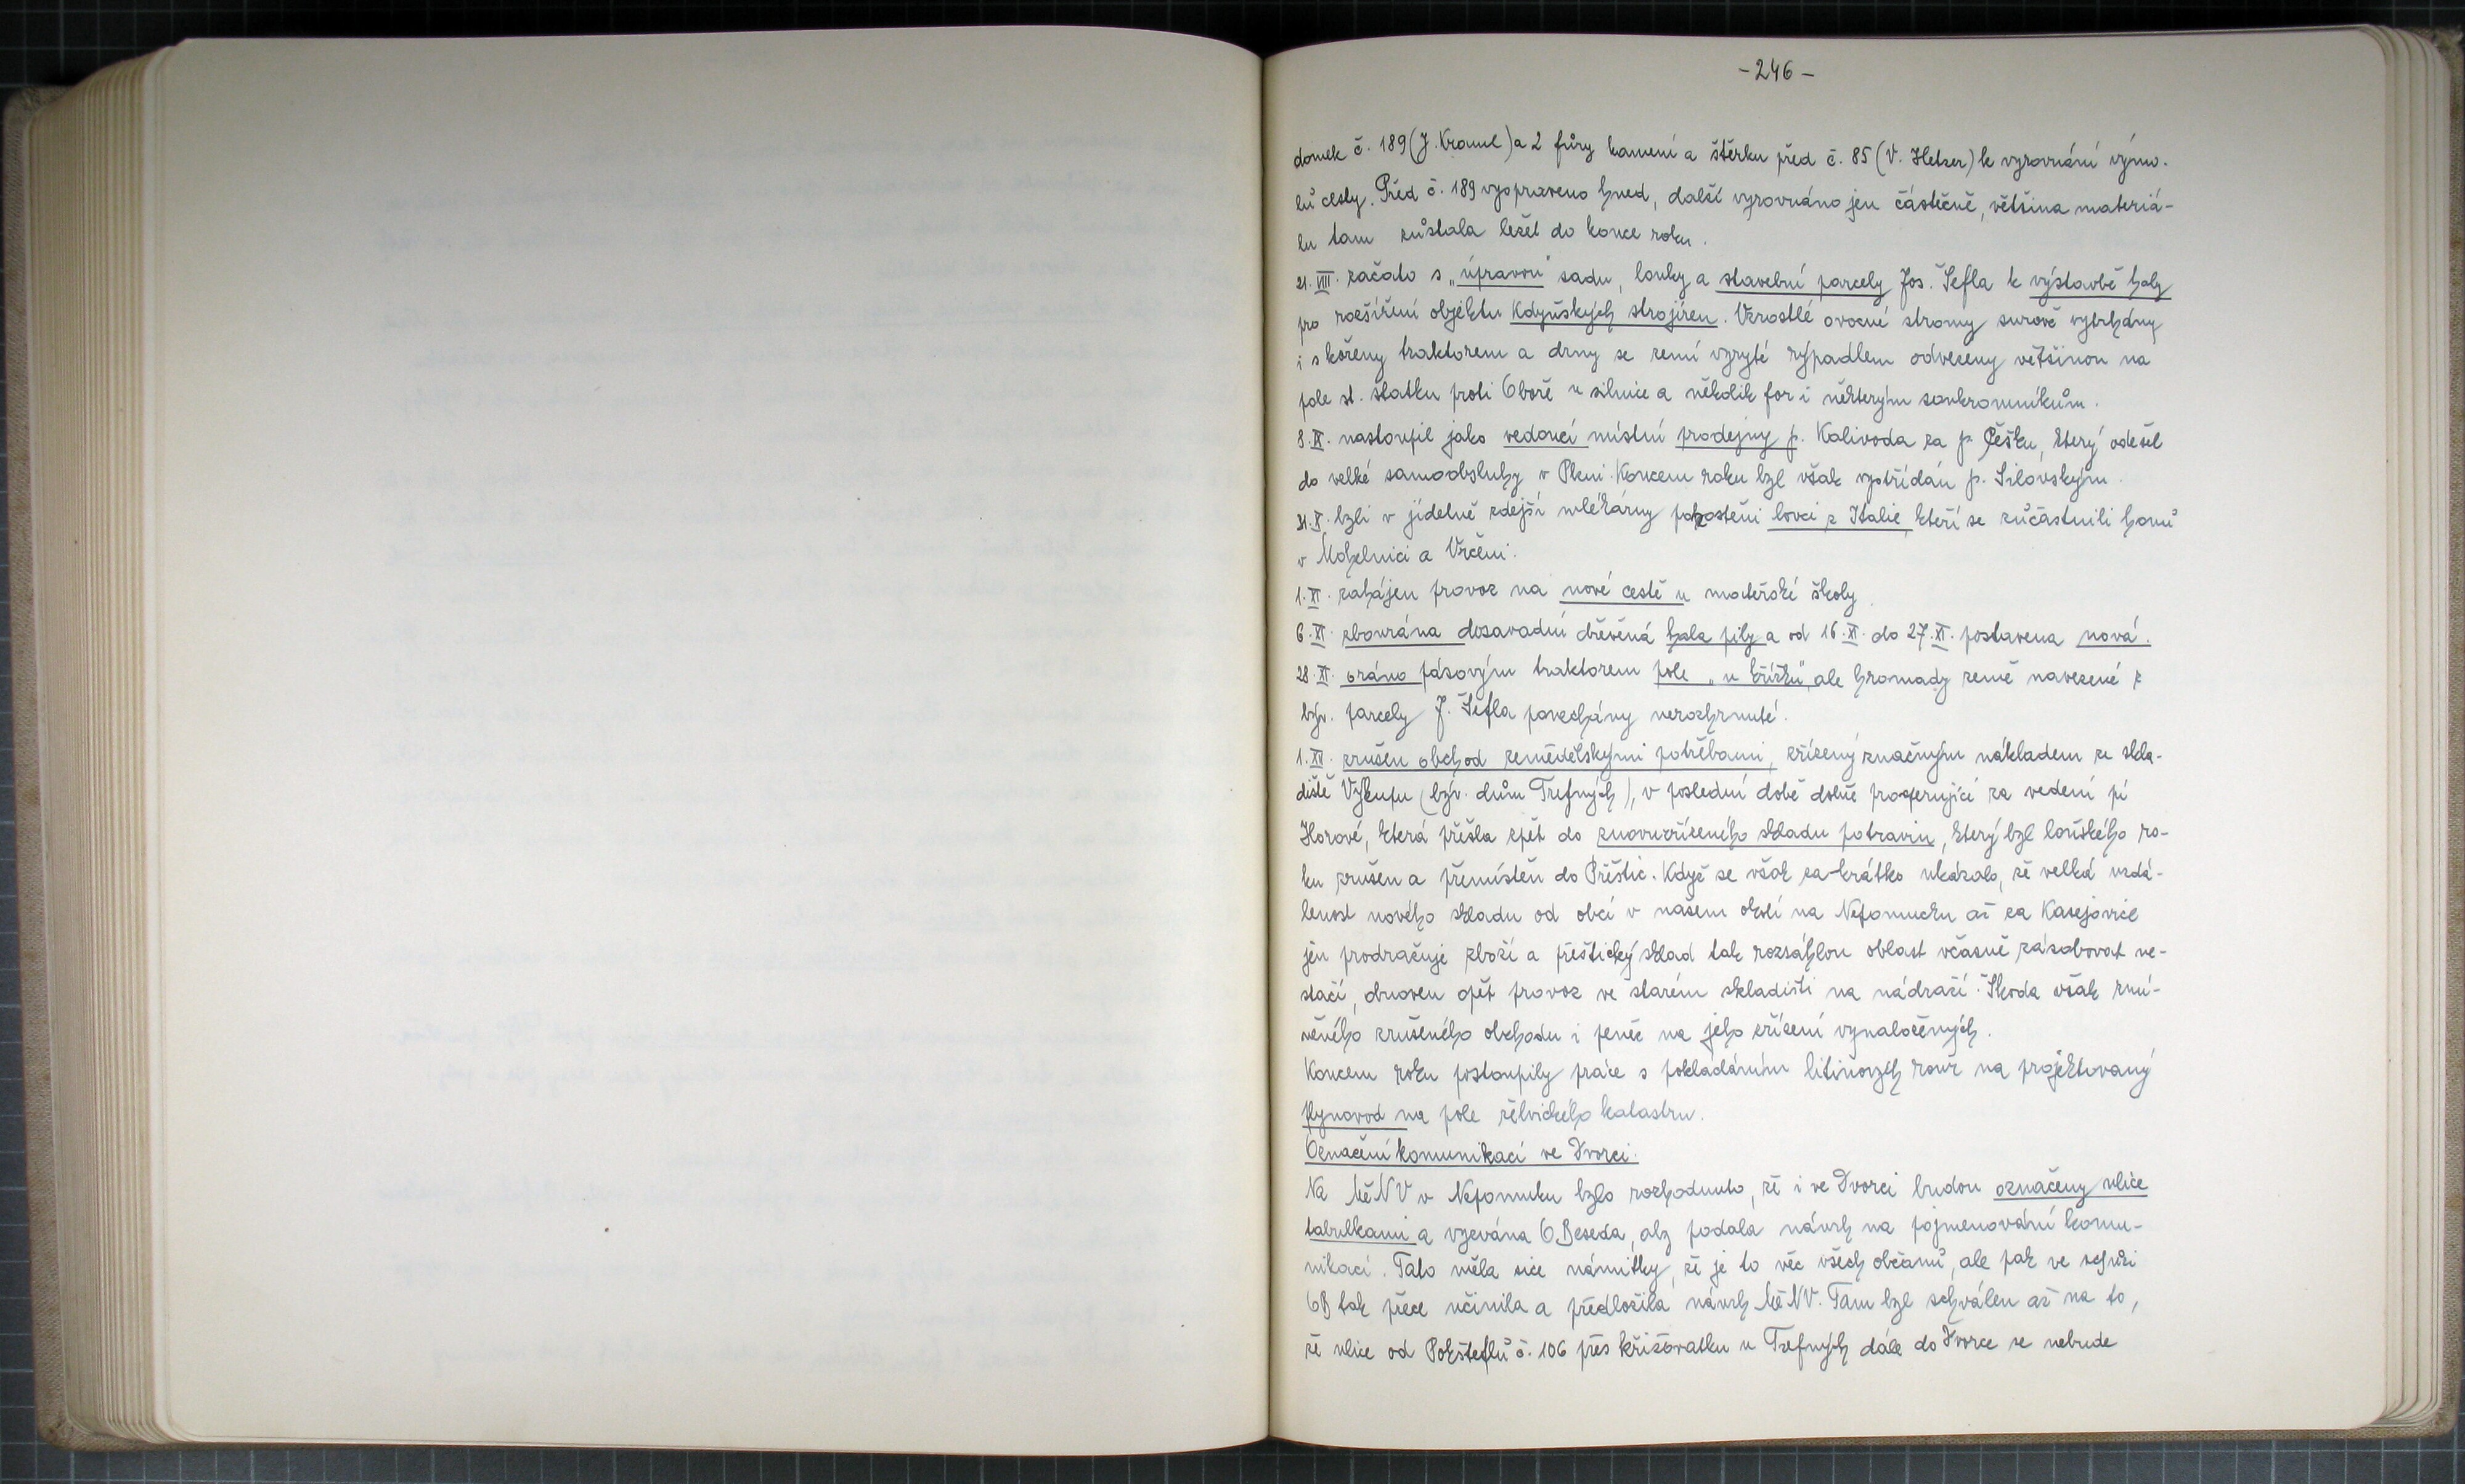 -246-
domek č. 189 (J. Kraml) a 2 fůry kamení a štěrku před č. 85 (V. Helzer) k vyrovnání výmo-
lů cesty. Před č. 189 vyspraveno hned, další vyrovnáno jen částečně, většina materiá-
lu tam zůstala ležet do konce roku.
21. VIII. začato s „úpravou" sadu, louky a stavební parcely Jos. Šefla k výstavbě haly
pro rozšíření objektu Kdyňských strojíren. Vzrostlé ovocné stromy surově vytrhány
i s kořeny traktorem a drny se zemí vyryté rýpadlem odvezeny většinou na
pole st. statku proti Oboře u silnice a několik for i některým soukromníkům.
8. X. nastoupil jako vedoucí místní prodejny p. Kalivoda za p. Češku, který odešel
do velké samoobsluhy v Plzni. Koncem roku byl však vystřídán p. Silovským.
21. X. byli v jídelně zdejší mlékárny pohostěni lovci z Italie, kteří se zúčastnili honů
v Mohelnici a Vrčeni.
1. XI. zahájen provoz na nové cestě u mateřské školy.
6. XI. zbourána dosavadní dřevěná hala pily a od 16. XI. do 27. XI. postavena nová.
28. XI. oráno pásovým traktorem pole „u křížku", ale hromady země navezené z
býv. parcely J. Šefla ponechány nerozhrnuté.
1. XII. zrušen obchod zemědělskými potřebami, zřízený značným nákladem ze skla-
diště Výkupu (býv. dům Trefných), v poslední době dobře prosperující za vedení pí
Horové, která přešla zpět do znovuzřízeného skladu potravin, který byl loňského ro-
ku zrušen a přemístěn do Přeštic. Když se však za krátko ukázalo, že velká vzdá-
lenost nového skladu od obcí v našem okolí na Nepomucku až za Kasejovice
jen prodražuje zboží a přeštický sklad tak rozsáhlou oblast včasně zásobovat ne-
stačí, obnoven opět provoz ve starém skladišti na nádraží. Škoda však zmí-
něného zrušeného obchodu i peněz na jeho zřízení vynaložených.
Koncem roku postoupily práce s pokládáním litinových rour na projektovaný
plynovod na pole želvického katastru.
Označení komunikací ve Dvorci.
Na MěNV v Nepomuku bylo rozhodnuto, že i ve Dvorci budou označeny ulice
tabulkami a vyzvána O Beseda, aby podala návrh na pojmenování komu-
nikací. Tato měla sice námitky, že je to věc všech občanů, ale pak ve schůzi
OB tak přece učinila a předložila návrh MěNV. Tam byl schválen až na to,
že ulice od Pokšteflů č. 106 přes křižovatku u Trefných dále do Dvorce se nebude